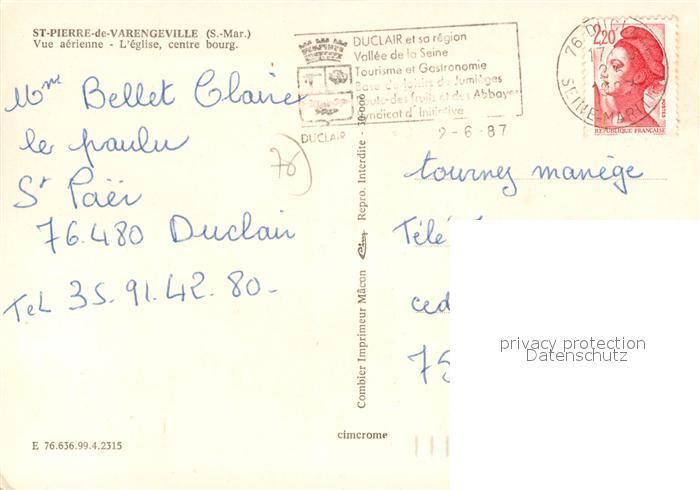 ST-PIERRE-de-VARENGEVILLE (S.-Mar.)
Vue aérienne - L'église, centre bourg.
DUCLAIR et sa région
Vallée de la Seine
Tourisme et Gastronomie
Base de loisirs de Jumièges
Route des fruits et des Abbayes
Syndicat d'Initiative
DUCLAIR
2-6-87
76-DUCLAIR
17
2-6
SEINE-MARIT
2,20
POSTES
REPUBLIQUE FRANÇAISE
Mme Bellet Claire
le paulu
St Paër
76.480 Duclair
Tel 35.91.42.80-
76
Combier Imprimeur Mâcon Cim Repro. Interdite - 50.000
tournez manège
Télé
ced
75
privacy protection
Datenschutz
cimcrome
E 76.636.99.4.2315